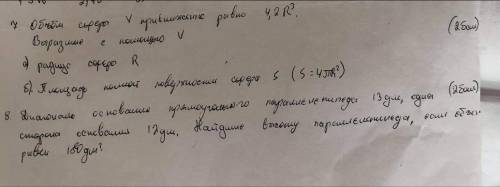 7. Объём сферы V приближённо равно 4,2R³. (2 бал)
Выразите с помощью V
а) радиус сферы R
б) Площадь полной поверхности сферы S (S = 4πR²)
8. Диагональ основания прямоугольного параллелепипеда 13 дм, одна (2 бал)
сторона основания 12 дм. Найдите высоту параллелепипеда, если объём
равен 180 дм³